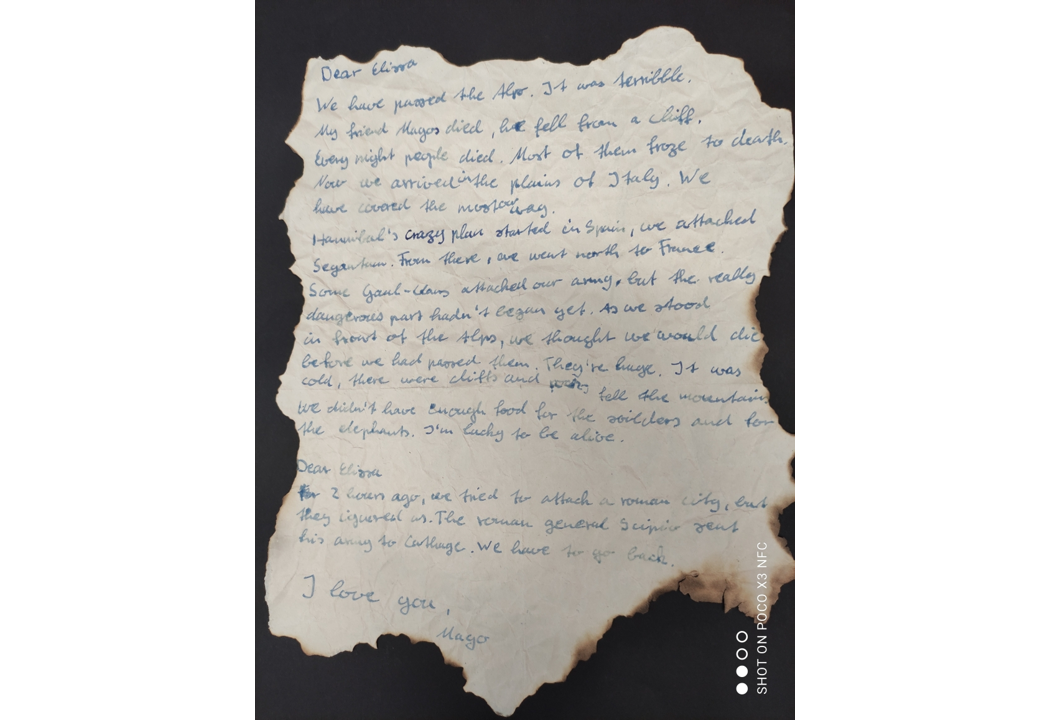 Dear Elissa
We have passed the Alps. It was terribble.
My friend Magos died, he fell from a cliff.
Every night people died. Most of them froze to death.
Now we arrived in the plains of Italy. We
have covered the most our way.
Hannibal's crazy plan started in Spain, we attached
Seguntum. From there, we went north to France.
Some Gaul-Clans attached our army, but the really
dangerous part hadn't began yet. As we stood
in front of the Alps, we thought we would die
before we had passed them. They're huge. It was
cold, there were cliffs and fell the mountains
We didn't have enough food for the soilders and for
the elephants. I'm lucky to be alive.
Dear Elissa
2 hours ago, we tried to attach a roman city, but
they ignored us. The roman general Scipio sent
his army to Carthage. We have to go back.
I love you,
Mago
SHOT ON POCO X3 NFC